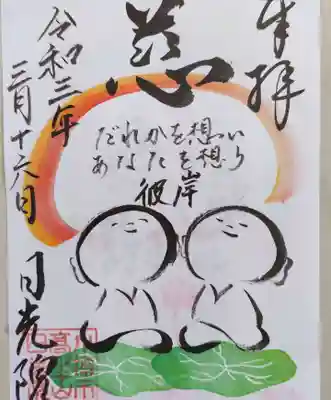 奉拝
慈
だれかを想い
あなたを想う
彼岸
令和三年
三月十六日
月光院